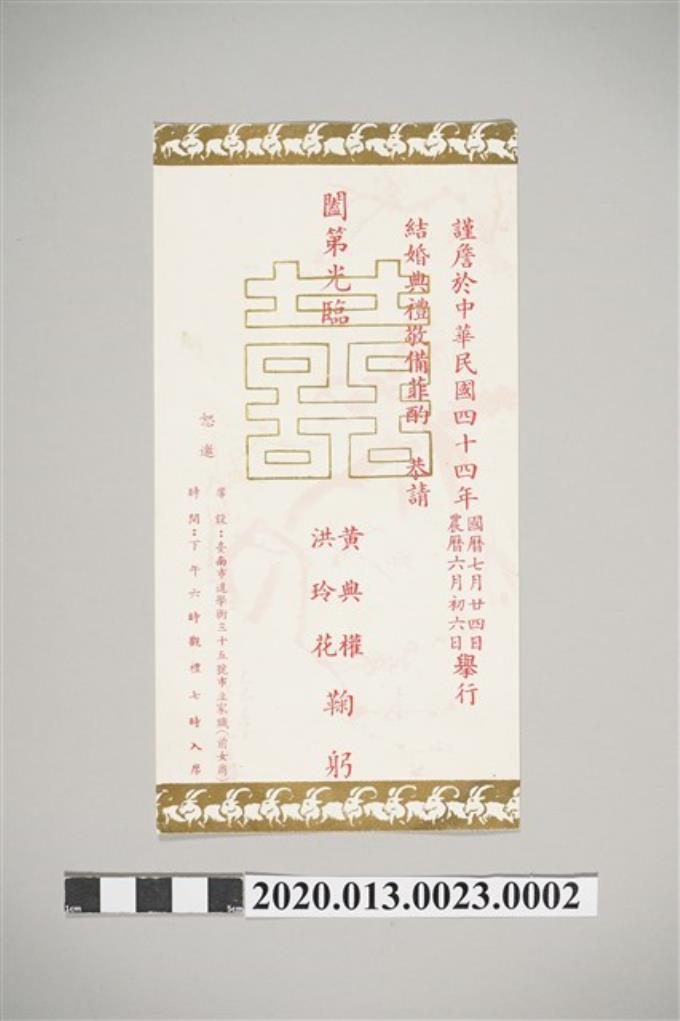 謹詹於中華民國四十四年國曆七月廿四日農曆六月初六日舉行
結婚典禮敬備菲酌 恭請
闔第光臨
黃典權
洪玲花
鞠躬
恕邀
席設：臺南市進學街三十五號市立家職（前女商）
時間：下午六時觀禮七時入席
囍
1cm
5cm
2020.013.0023.0002